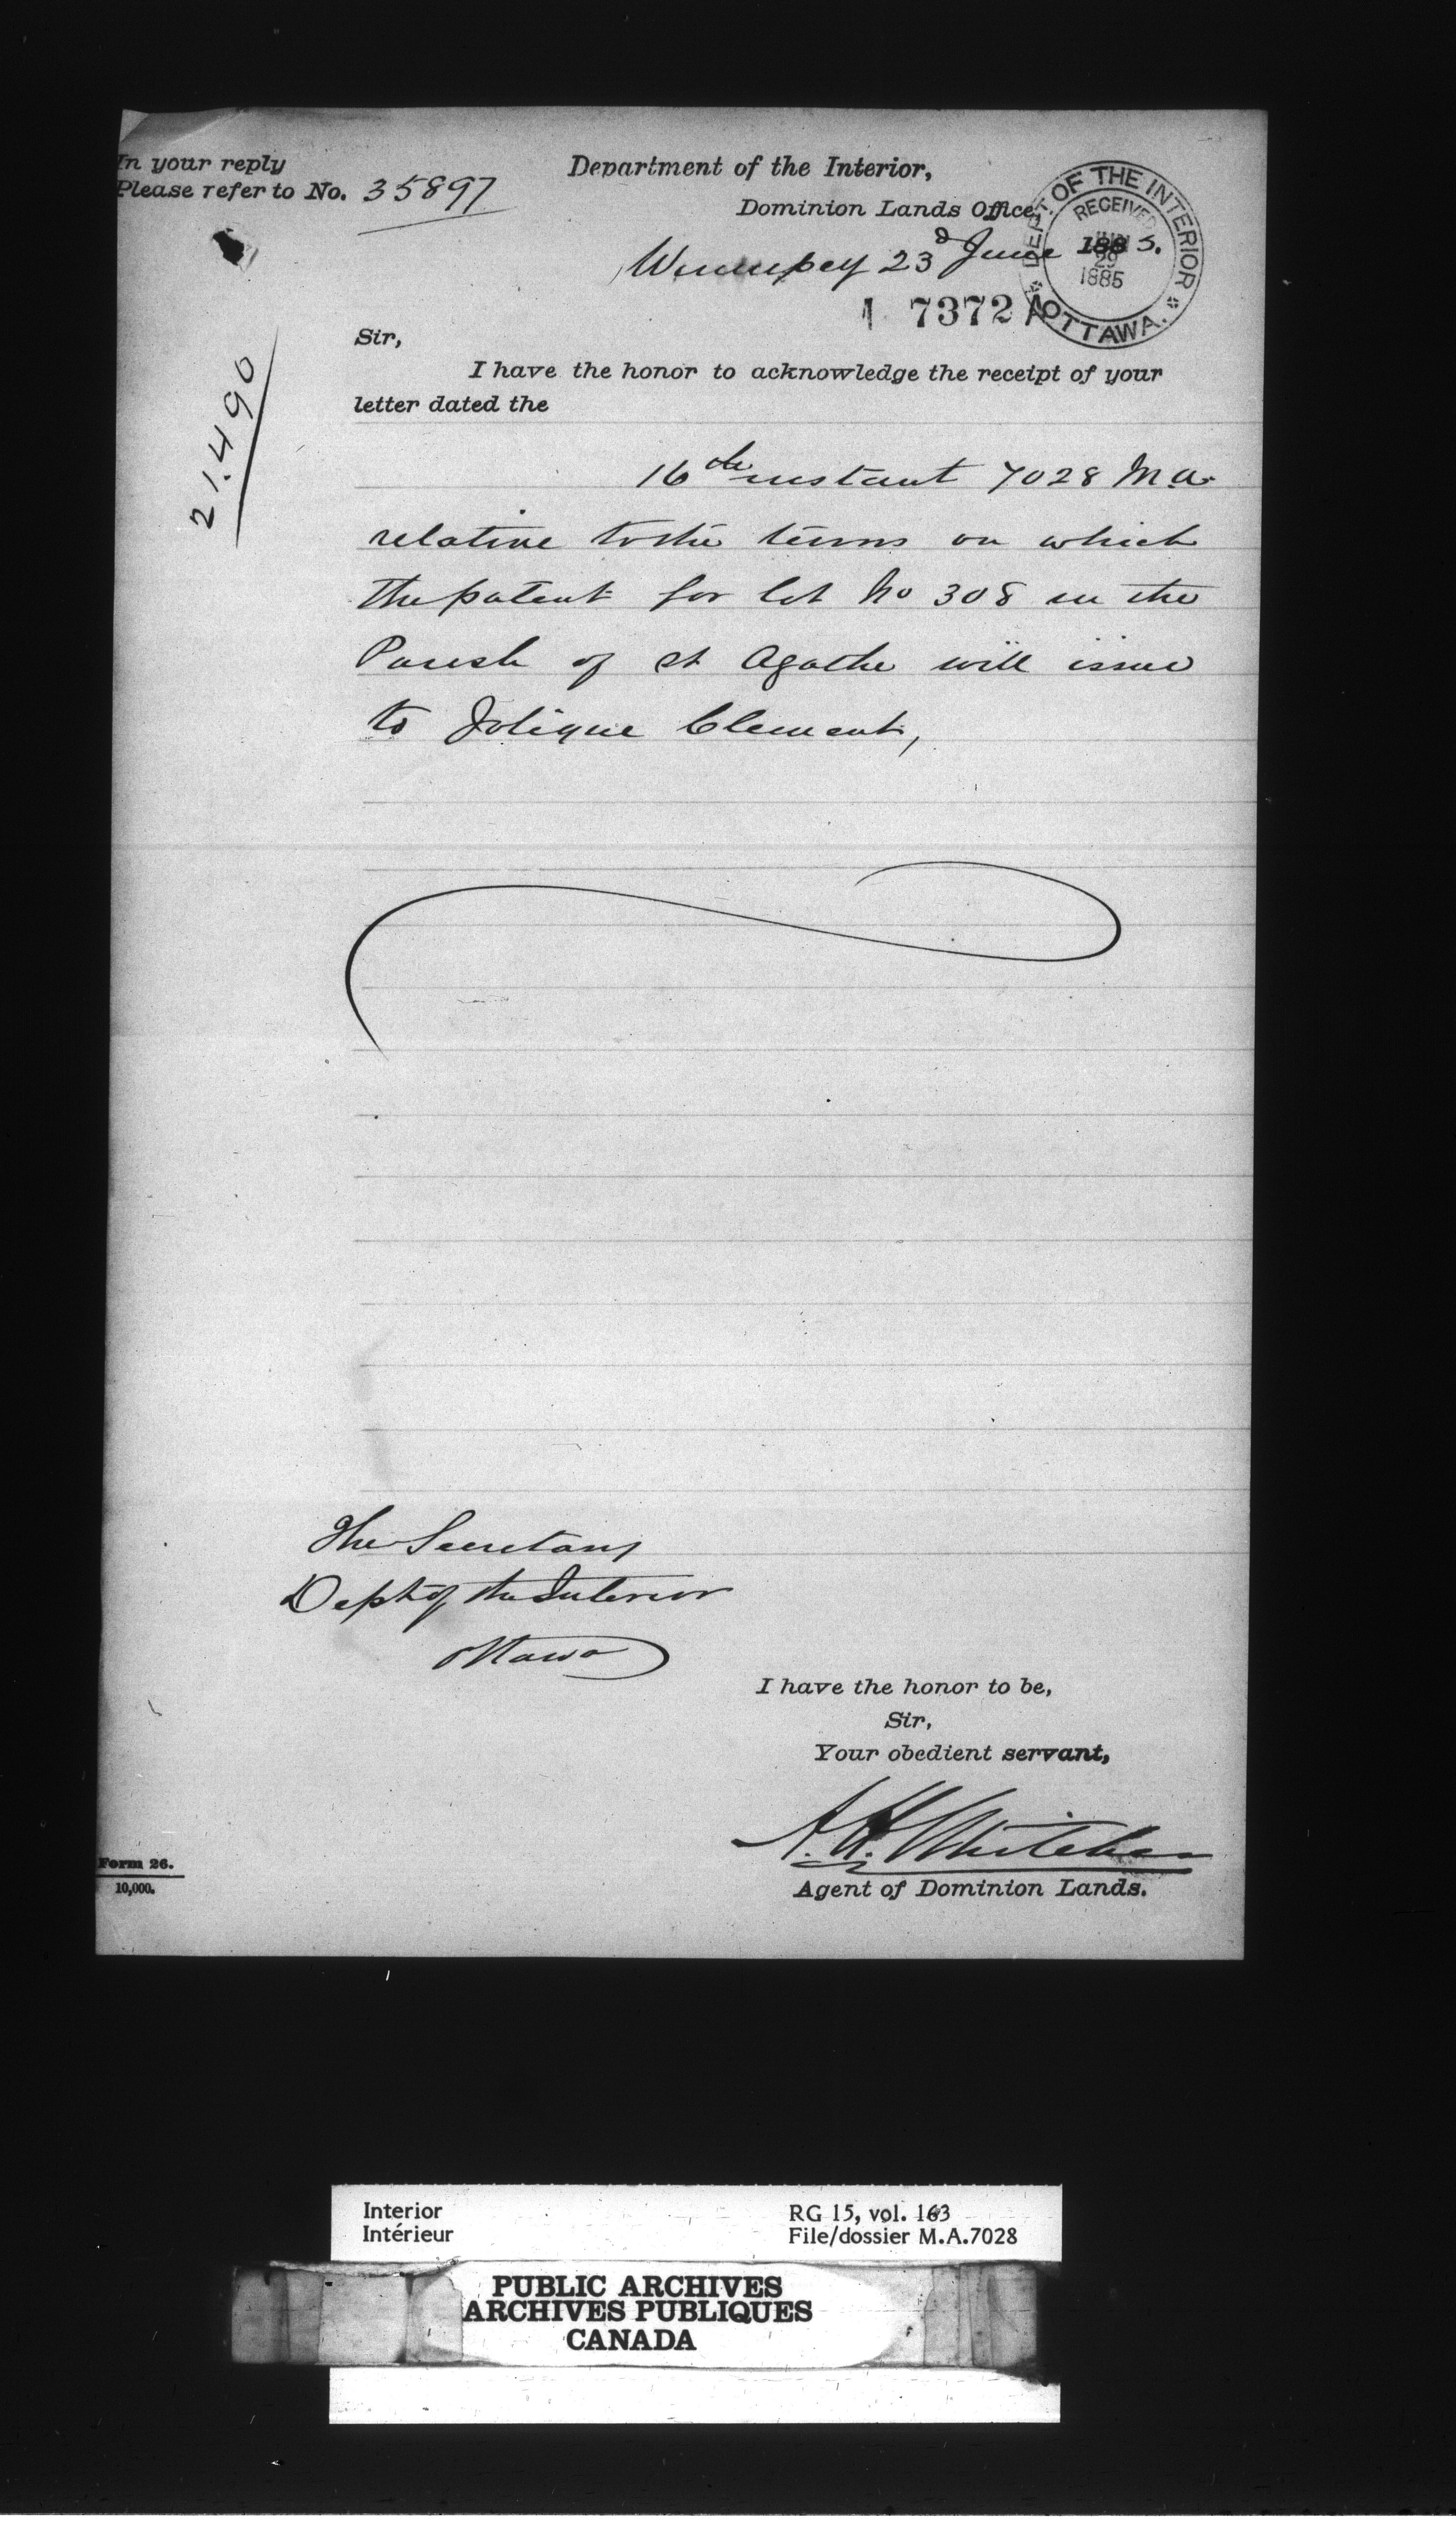 In your reply
Please refer to No. 35897
Department of the Interior,
Dominion Lands Office,
Winnipeg 23d June 1885.
DEPT OF THE INTERIOR
RECEIVED
JUN
29
1885
OTTAWA.
1 7372
21.490
Sir,
I have the honor to acknowledge the receipt of your
letter dated the
16th instant 7028 M.A.
relative to the terms on which
the patent for lot No 308 in the
Parish of St Agathe will issue
to Jolique Clement,
The Secretary
Dept of the Interior
Ottawa
I have the honor to be,
Sir,
Your obedient servant,
A.H. Whitcher
Agent of Dominion Lands.
Form 26.
10,000.
Interior
Intérieur
RG 15, vol. 163
File/dossier M.A.7028
PUBLIC ARCHIVES
ARCHIVES PUBLIQUES
CANADA